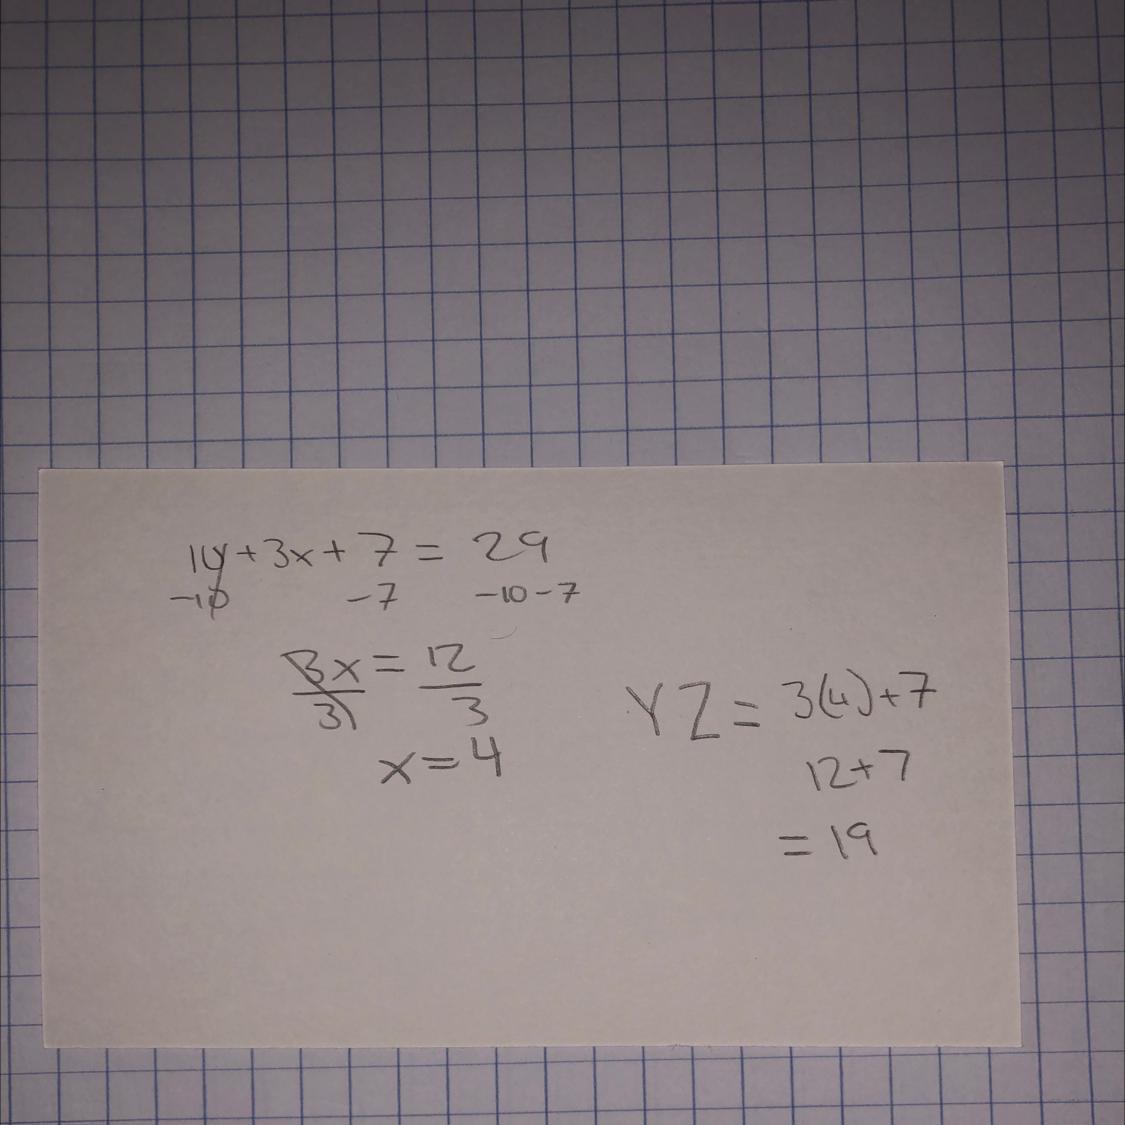 10+3x+7 = 29
-10 -7 -10-7
3x = 12
3 3
x=4
YZ = 3(4)+7
12+7
= 19